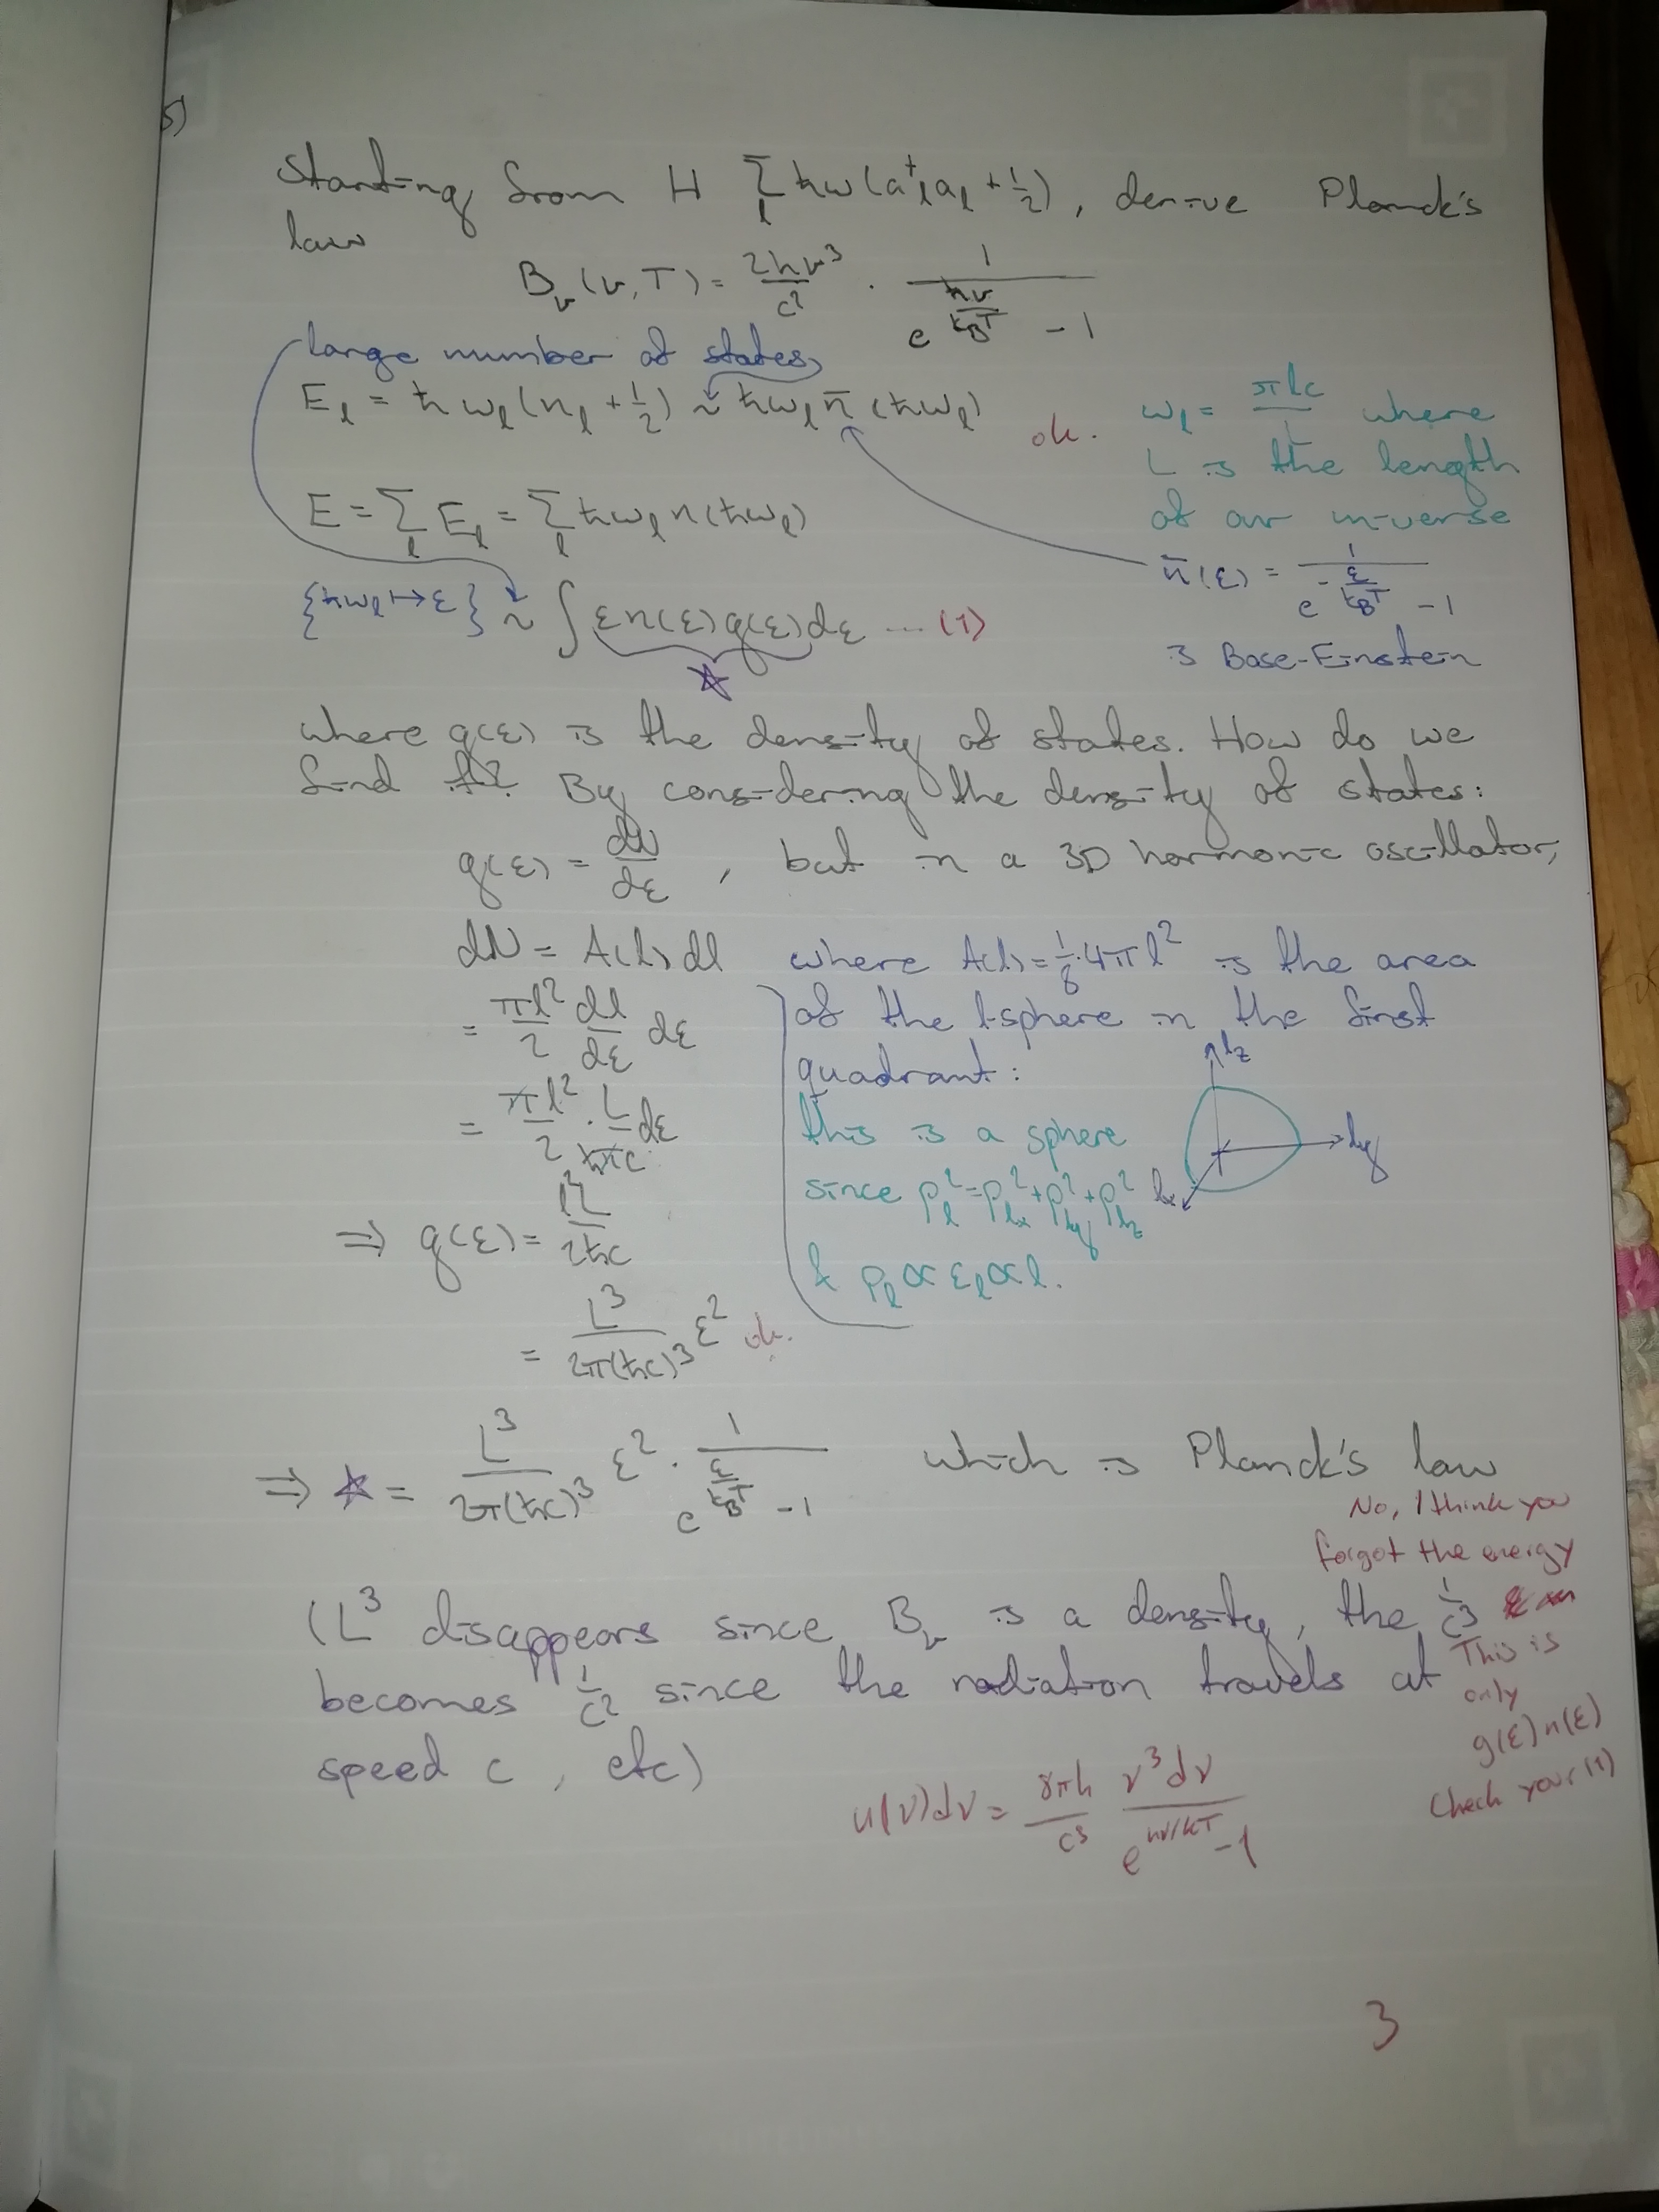 5)
Starting from H Σ_l ħω(a†_l a_l + 1/2), derive Planck's
law
B_ν(ν,T) = 2hν³/c² · 1/(e^(ħν/k_BT) - 1)
large number of states
E_l = ħω_l(n_l + 1/2) ~ ħω_l n̄(ħω_l)
ok.
ω_l = πlc/L where
L is the length
of our universe
E = Σ_l E_l = Σ_l ħω_l n(ħω_l)
n̄(ε) = 1/(e^(-ε/k_BT) - 1)
is Bose-Einstein
{ħω_l ↦ ε} ~ ∫ ε n(ε) g(ε) dε ... (1)
☆
where g(ε) is the density of states. How do we
find it? By considering the density of states:
g(ε) = dN/dε , but in a 3D harmonic oscillator,
dN = A(l) dl where A(l) = 1/8·4πl² is the area
of the l-sphere in the first
quadrant:
= πl²/2 dl/dε dε
= πl²/2 · L/ħπc dε
this is a sphere
since p_l² = p_lx² + p_ly² + p_lz²
& p_l ∝ ε_l ∝ l.
l_z
l_y
l_x
⇒ g(ε) = l²L/2ħc
= L³/2π(ħc)³ ε² ok.
⇒ ☆ = L³/2π(ħc)³ ε² · 1/(e^(ε/k_BT) - 1) which is Planck's law
No, I think you
forgot the energy
(L³ disappears since B_ν is a density, the 1/c³
becomes 1/c² since the radiation travels at
speed c , etc)
This is
only
g(ε)n(ε)
Check your (1)
u(ν)dν = 8πh/c³ ν³dν/(e^(hν/kT) - 1)
3